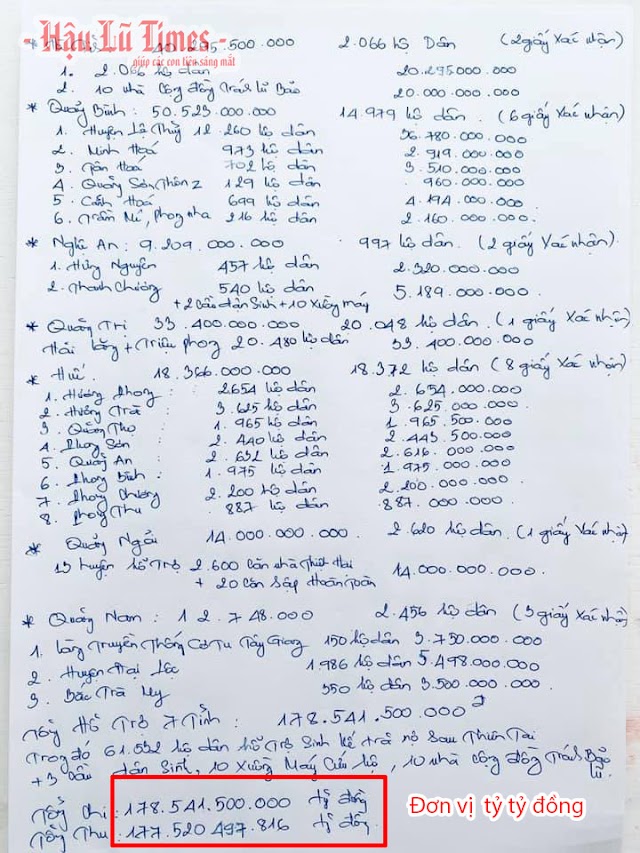 Hậu Lũ Times
giúp các con liên sáng mắt
* 40.295.500.000 2.066 hộ Dân (2 giấy Xác nhận)
1. 2.066 hộ dân 20.295.000.000
2. 10 nhà Cộng đồng Tránh lũ Bão 20.000.000.000
* Quảng Bình: 50.523.000.000 14.979 hộ dân. (6 giấy Xác nhận)
1. Huyện Lệ Thủy 12.260 hộ dân 36.780.000.000
2. Minh Hoá 973 hộ dân 2.919.000.000
3. Tân Hoá 702 hộ dân 3.510.000.000
4. Quảng Sơn, Thôn 2 129 hộ dân 960.000.000
5. Cảnh Hoá 699 hộ dân 4.194.000.000
6. Trầm Mé, Phong nha 216 hộ dân 2.160.000.000
* Nghệ An: 9.209.000.000 997 hộ dân. (2 giấy Xác nhận).
1. Hưng Nguyên 457 hộ dân 2.320.000.000
2. Thanh Chương 540 hộ dân 5.189.000.000
+ 2 Cầu dân Sinh + 10 Xuồng máy
* Quảng Trị 33.400.000.000 20.048 hộ dân. (1 giấy Xác nhận)
Hải lăng + Triệu phong 20.480 hộ dân 33.400.000.000
* Huế. 18.366.000.000 18.372 hộ dân (8 giấy Xác nhận)
1. Hương Phong: 2654 hộ dân 2.654.000.000
2. Hương Trà: 3.625 hộ dân 3.625.000.000
3. Quảng Thọ: 1.965 hộ dân 1.965.500.000
4. Phong Sơn: 2.440 hộ dân 2.443.500.000
5. Quảng An: 2.632 hộ dân 2.616.000.000
6. Phong Bình: 1.975 hộ dân 1.975.000.000
7. Phong Chương: 2.200 hộ dân 2.200.000.000
8. Phong Thu: 887 hộ dân .887.000.000.
* Quảng Ngãi 14.000.000.000 2.620 hộ dân. (1 giấy Xác nhận)
13 huyện hỗ Trợ 2.600 Căn nhà Thiệt Hại 14.000.000.000.
+ 20 Căn Sập Hoàn Toàn
* Quảng Nam: 12.748.000 2.456 hộ dân (3 giấy Xác nhận)
1. Làng Truyền Thống Cơ Tu Tây Giang 150 hộ dân 3.750.000.000
2. Huyện Đại Lộc 1.986 hộ dân 5.498.000.000
3. Bắc Trà My 350 hộ dân 3.500.000.000
Tổng Hỗ Trợ 7 Tỉnh: 178.541.500.000
Trong đó 61.532 hộ dân hỗ Trợ Sinh kế trả nợ Sau Thiên Tai
+ 3 Cầu dân Sinh, 10 Xuồng Máy Cứu hộ, 10 nhà cộng đồng Tránh Bão Lũ
Tổng Chi: 178.541.500.000 tỷ đồng
Tổng Thu: 177.520.497.816 tỷ đồng.
Đơn vị tỷ tỷ đồng